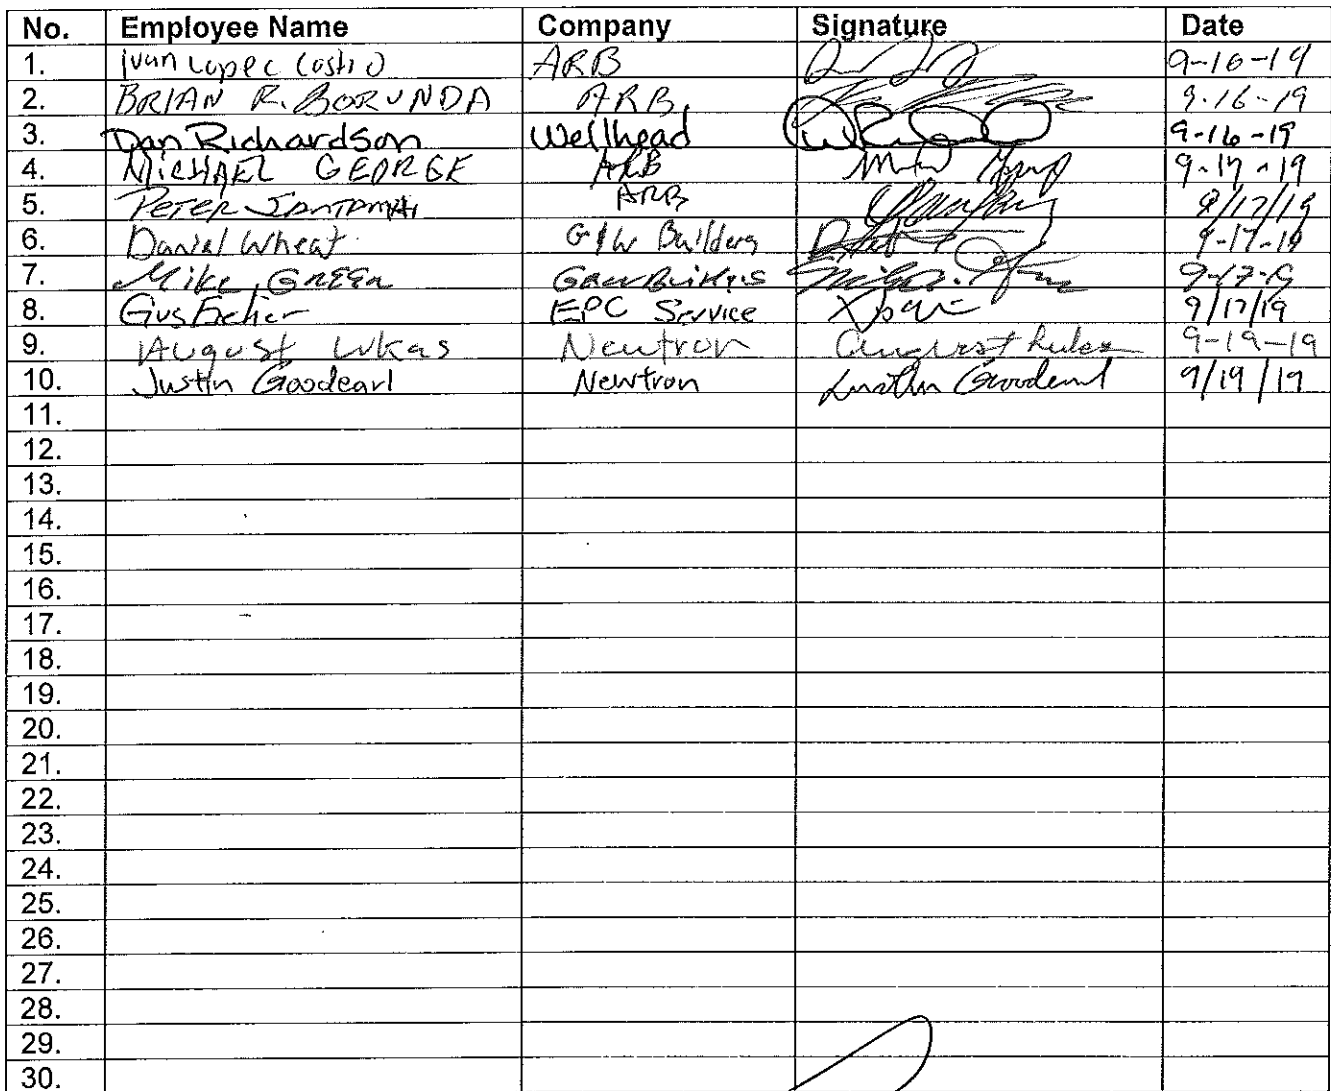 No. Employee Name Company Signature Date
1. Ivan Lopez Castro ARB 9-16-19
2. BRIAN R. BORUNDA ARB. 9-16-19
3. Dan Richardson Wellhead 9-16-19
4. MICHAEL GEORGE ARB 9-17-19
5. PETER ARB 9/17/19
6. Daniel Wheat G&W Builders 9-17-19
7. Mike GREEN G&W Builders 9-17-19
8. Gus EPC Service 9/17/19
9. August Lukas Newtron August Lukas 9-19-19
10. Justin Goodearl Newtron Justin Goodearl 9/19/19
11.
12.
13.
14.
15.
16.
17.
18.
19.
20.
21.
22.
23.
24.
25.
26.
27.
28.
29.
30.